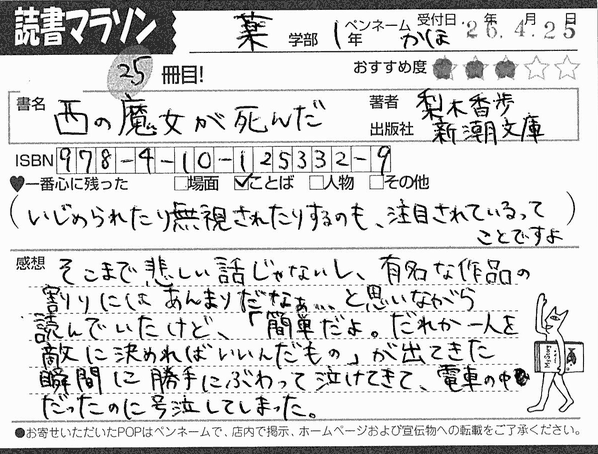 読書マラソン
薬学部 1年 ペンネーム かほ 受付日 26年4月25日
25冊目!
おすすめ度 ★★★☆☆
書名 西の魔女が死んだ
著者 梨木香歩
出版社 新潮文庫
ISBN 978-4-10-125332-9
♥一番心に残った □場面 ☑ことば □人物 □その他
(いじめられたり無視されたりするのも、注目されているって
ことですよ)
感想 そこまで悲しい話じゃないし、有名な作品の
割りにはあんまりだなぁ、、、と思いながら
読んでいたけど、「簡単だよ。だれか一人を
敵に決めればいいんだもの」が出てきた
瞬間に勝手にぶわって泣けてきて、電車の中
だったのに号泣してしまった。
●お寄せいただいたPOPはペンネームで、店内で掲示、ホームページおよび宣伝物への転載をご了承ください。